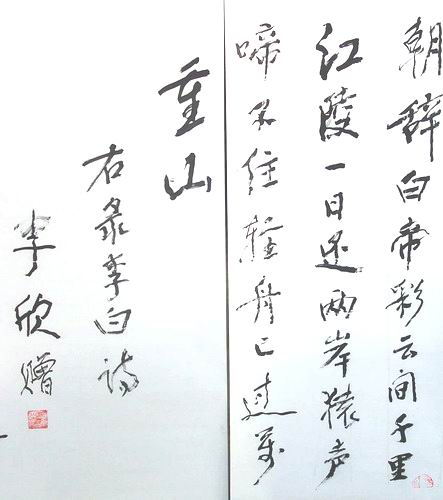 朝辞白帝彩云间千里
江陵一日还两岸猿声
啼不住轻舟已过万
重山
右录李白诗
李欣赠